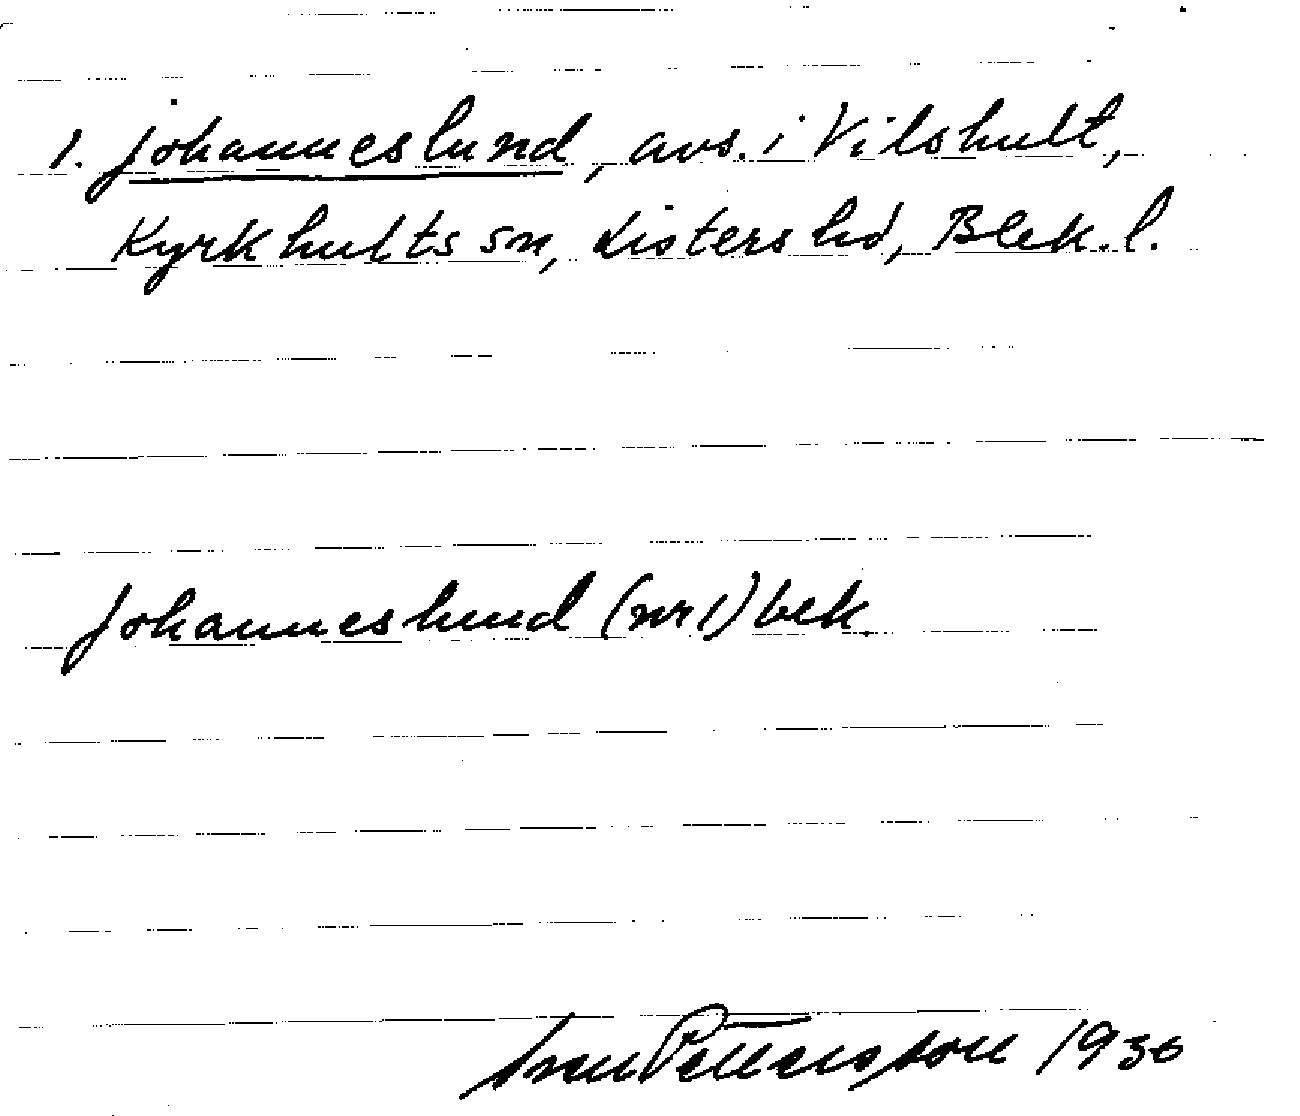 1. Johanneslund, avs. i Vilshult,
Kyrkhults sn, Listers hd, Blek. l.
Johanneslund (nr 1) bek.
Pettersson 1930